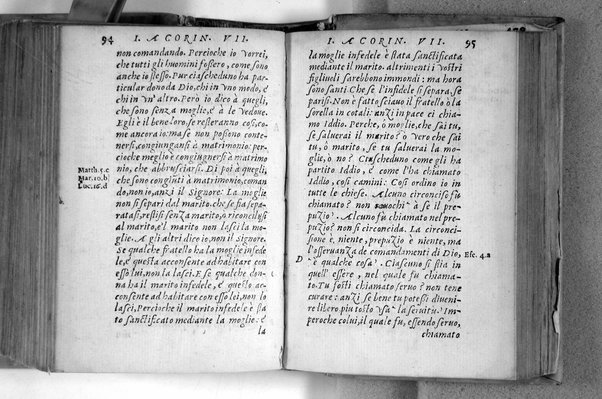 94 I. A CORIN. VII.
non comandando. Percioche io vorrei,
che tutti gli huomini fossero, come sono
anche io stesso. Pur ciascheduno ha par
ticular dono da Dio, chi in vno modo, e
chi in vn'altro. Però io dico à quegli,
che sono senza moglie, e à le vedoue.
Egli è il ben loro, se resteranno così, co
me ancora io: ma se non possono conte-
nersi, congiungansi à matrimonio: per
cioche meglio è congiugnersi à matrimo
nio, che abbrusciarsi. Di poi à quegli,
che sono congiūti à matrimonio, coman
do, non io, anzi il Signore: La moglie
non si separi dal marito. che se sia sepa-
rata si, resti si senza marito, ò riconcilii si
al marito, e'l marito non lasci la mo-
glie. A gli altri dico io, non il Signore.
Se qualche fratello ha la moglie infede
le, e questa acconsente ad habitare con
esso lui, non la lasci. E se qualche don-
na ha il marito infedele, e questo ac-
consente ad habitare con esso lei, non lo
lasci, Percioche il marito infedele è sta
to sanctificato mediante la moglie: e
la
Matth. 5. c
Mar. 10. b
Luc. 16. d
I. A CORIN. VII. 95
la moglie infedele è stata sanctificata
mediante il marito. altrimenti i vostri
figliueli sarebbono immondi: ma hora
sono santi. Che se l'infidele si separa, se
parisi. Non è fatto schiauo il fratello ò la
sorella in cotali: anzi in pace ci chia-
mo Iddio. Perche, ò moglie, che sai tu,
se saluerai il marito? ò vero che sai
tu, ò marito, se tu saluerai la mo-
glie, ò no? Ciascheduno come gli ha
partito Iddio, e come l'ha chiamato
Iddio, così camini: Così ordino io in
tutte le chiese. Alcuno circonciso fù
chiamato? non à se il pre-
puzio. Alcuno fù chiamato nel pre-
puzio? non si circoncida. La circonci-
sione è, niente, prepuzio è niente, ma
l'osseruanza de comandamenti di Dio,
è qualche cosa. Ciascuno si stia in
quell' essere, nel quale fu chiama-
to. Tu fosti chiamato seruo? non tene
curare: anzi se bene tu potessi diueni
re libero. più tosto vsa la seruitù. Im-
peroche colui, il quale fu, essendo seruo,
chiamato
D
Efe. 4. a